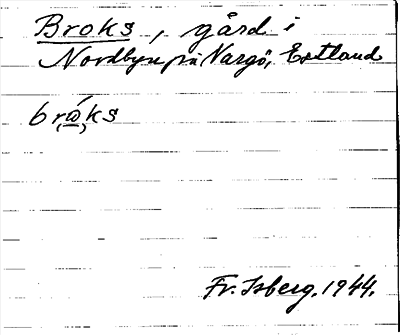 Broks, gård i
Nordbyn på Nargö, Estland
bråks
Fr. Isberg. 1944.